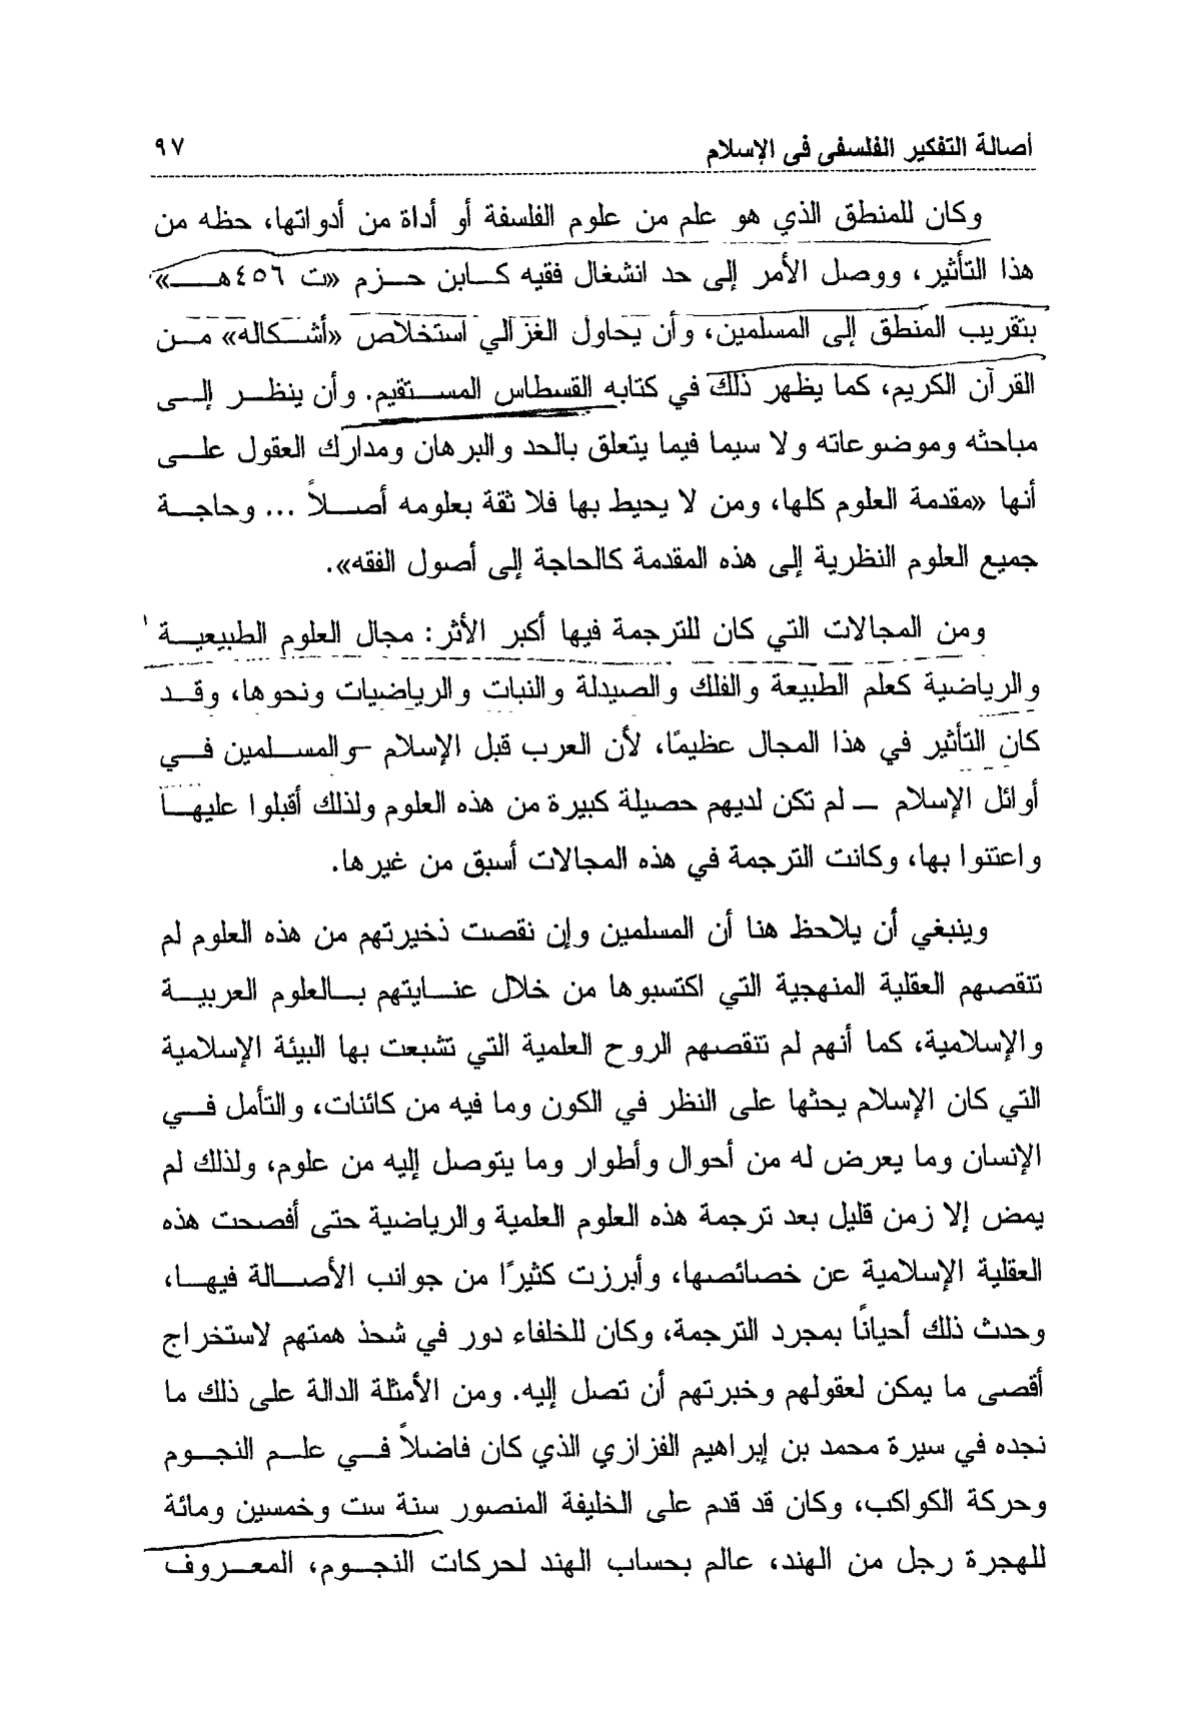 أصالة التفكير الفلسفى فى الإسلام ٩٧
وكان للمنطق الذي هو علم من علوم الفلسفة أو أداة من أدواتها، حظه من
هذا التأثير، ووصل الأمر إلى حد انشغال فقيه كـابن حـزم «ت ٤٥٦هـ»
بتقريب المنطق إلى المسلمين، وأن يحاول الغزالي استخلاص «أشكاله» مـن
القرآن الكريم، كما يظهر ذلك في كتابه القسطاس المستقيم. وأن ينظر إلـى
مباحثه وموضوعاته ولا سيما فيما يتعلق بالحد والبرهان ومدارك العقول علـى
أنها «مقدمة العلوم كلها، ومن لا يحيط بها فلا ثقة بعلومه أصلاً ... وحاجـة
جميع العلوم النظرية إلى هذه المقدمة كالحاجة إلى أصول الفقه».
ومن المجالات التي كان للترجمة فيها أكبر الأثر: مجال العلوم الطبيعيـة
والرياضية كعلم الطبيعة والفلك والصيدلة والنبات والرياضيات ونحوها، وقـد
كان التأثير في هذا المجال عظيمًا، لأن العرب قبل الإسلام –والمسـلمين فـي
أوائل الإسلام – لم تكن لديهم حصيلة كبيرة من هذه العلوم ولذلك أقبلوا عليهـا
واعتنوا بها، وكانت الترجمة في هذه المجالات أسبق من غيرها.
وينبغي أن يلاحظ هنا أن المسلمين وإن نقصت ذخيرتهم من هذه العلوم لم
تنقصهم العقلية المنهجية التي اكتسبوها من خلال عنـايتهم بـالعلوم العربيـة
والإسلامية، كما أنهم لم تنقصهم الروح العلمية التي تشبعت بها البيئة الإسلامية
التي كان الإسلام يحثها على النظر في الكون وما فيه من كائنات، والتأمل فـي
الإنسان وما يعرض له من أحوال وأطوار وما يتوصل إليه من علوم، ولذلك لم
يمض إلا زمن قليل بعد ترجمة هذه العلوم العلمية والرياضية حتى أفصحت هذه
العقلية الإسلامية عن خصائصها، وأبرزت كثيرًا من جوانب الأصـالة فيهـا،
وحدث ذلك أحيانًا بمجرد الترجمة، وكان للخلفاء دور في شحذ همتهم لاستخراج
أقصى ما يمكن لعقولهم وخبرتهم أن تصل إليه. ومن الأمثلة الدالة على ذلك ما
نجده في سيرة محمد بن إبراهيم الفزازي الذي كان فاضلاً فـي علـم النجـوم
وحركة الكواكب، وكان قد قدم على الخليفة المنصور سنة ست وخمسين ومائة
للهجرة رجل من الهند، عالم بحساب الهند لحركات النجـوم، المعـروف